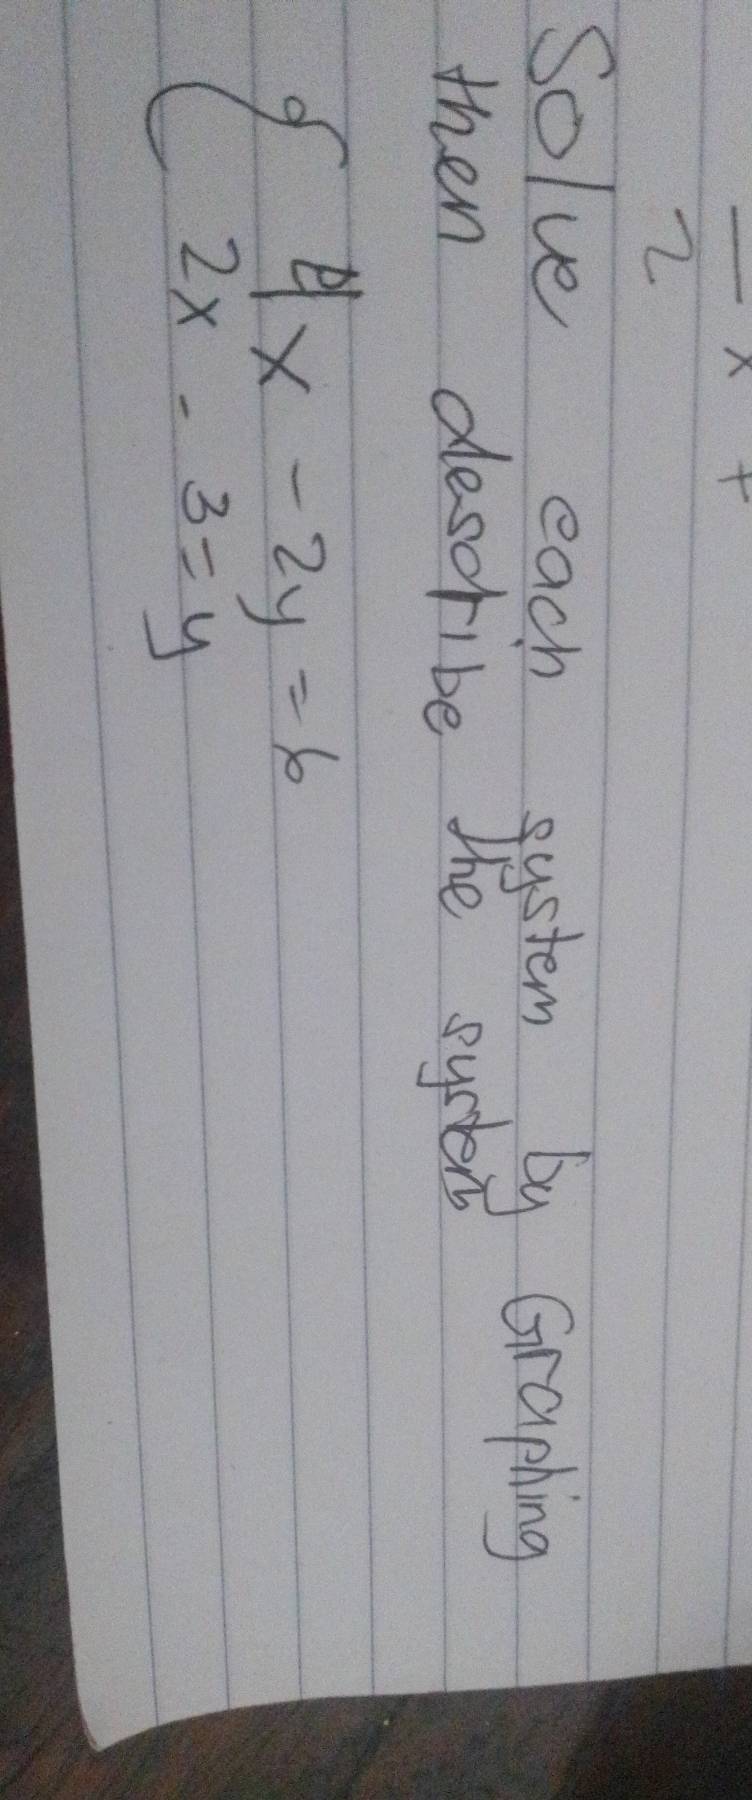 - x +
2
Solve each system by Graphing
then desdribe the system
{ 4x - 2y = 6
2x - 3 = y